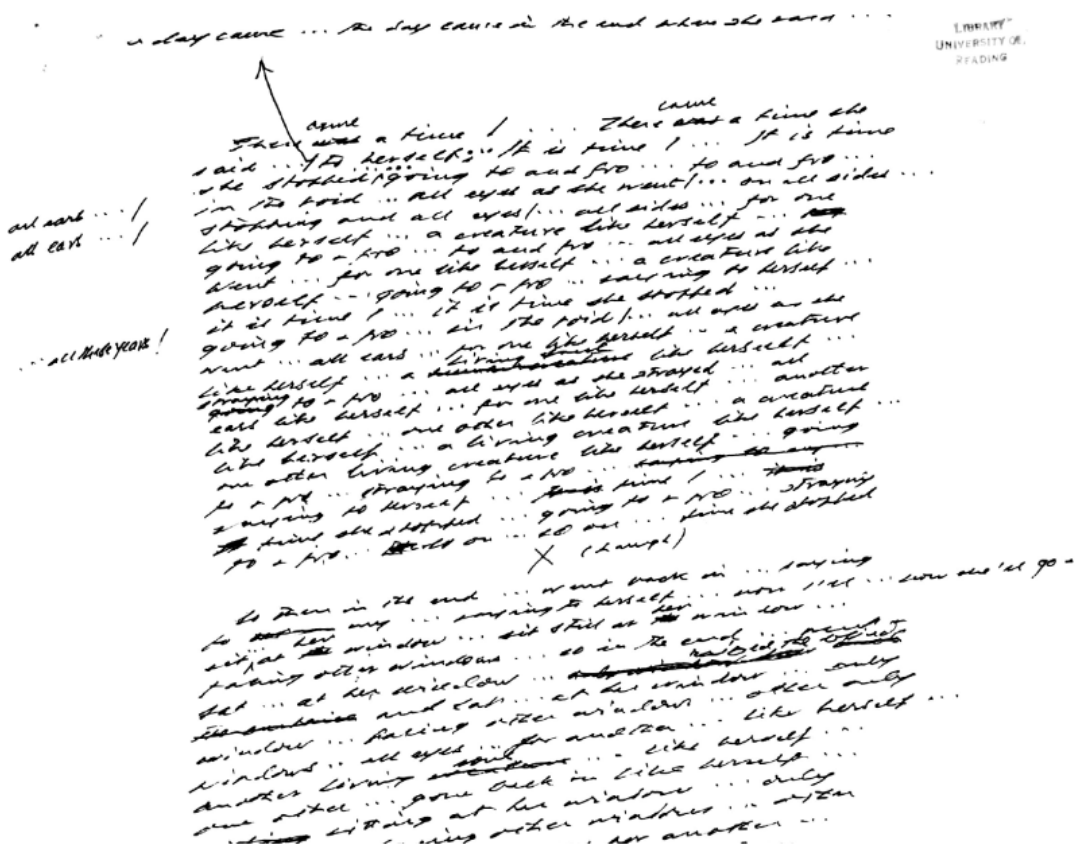 a day came ... the day came in the end when she said ...
LIBRARY
UNIVERSITY OF
READING
came came
There was a time! .... There was a time she
said ... to herself ... It is time! ... It is time
she stopped! going to and fro ... to and fro ...
in the void ... all eyes as she went! ... on all sides ...
stopping and all eyes! ... all sides ... for one
all ears ... /
all ears ... /
like herself ... a creature like herself ...
going to & fro ... to and fro ... all eyes as she
went ... for one like herself ... a creature like
herself ... going to & fro ... saying to herself ...
it is time! ... it is time she stopped ...
going to & fro ... in the void! ... all eyes as she
... all these years!
went ... all ears ... for one like herself ... a creature
living soul
like herself ... a creature like herself ...
straying
going to & fro ... all eyes as she strayed ... all
ears like herself ... for one like herself ... another
like herself ... one other like herself ... a creature
like herself ... a living creature like herself ...
one other living creature like herself ... going
to & fro ... straying to & fro ... saying to
saying to herself ... time! ...
time she stopped ... going to & fro ... straying
to & fro ... so on ... so on ... time she stopped
X (laugh)
So then in the end ... went back in ... saying
to ... saying to herself ... now I'll ... now she'll go &
her her
sit at the window ... sit still at the window ...
facing other windows ... so in the end ... went &
raised the blind
sat ... at her window ...
and sat ... at her window ... only
window ... facing other windows ... other only
windows ... all eyes ... for another ... like herself ...
soul
another living creature ... like herself ...
one other ... gone back in like herself ...
sitting at her window ... only
facing other windows ... other
for another ...